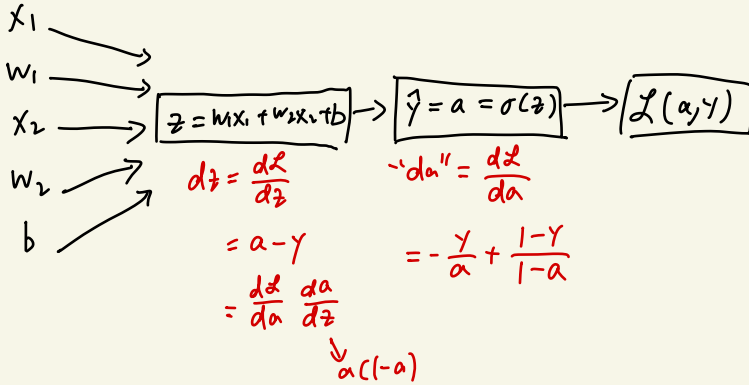 x1
w1
x2
w2
b
z = w1x1 + w2x2 + b
ŷ = a = σ(z)
ℒ(a,y)
dz = dℒ/dz
= a - y
= dℒ/da da/dz
a(1-a)
"da" = dℒ/da
= - y/a + 1-y/1-a